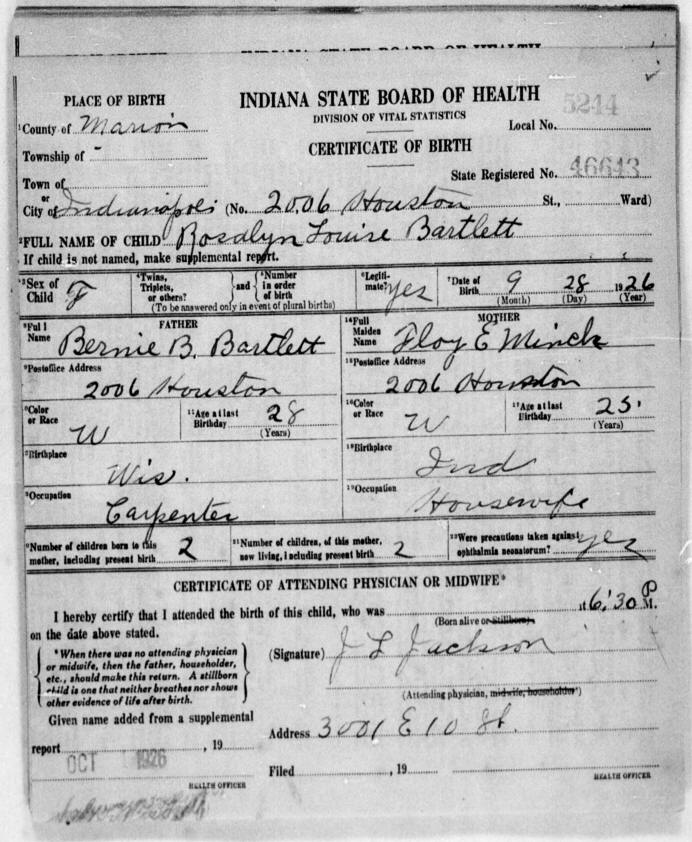 INDIANA STATE BOARD OF HEALTH
PLACE OF BIRTH
INDIANA STATE BOARD OF HEALTH
5244
DIVISION OF VITAL STATISTICS
County of Marion
Local No.
CERTIFICATE OF BIRTH
Township of -
State Registered No. 46643
Town of
or
City of Indianapolis (No. 2006 Houston St., Ward)
FULL NAME OF CHILD Rosalyn Louise Bartlett
If child is not named, make supplemental report.
Sex of Child F
Twins, Triplets, or others? and Number in order of birth
(To be answered only in event of plural births)
Legitimate? Yes
Date of Birth 9 28 1926
(Month) (Day) (Year)
FATHER
Full Name Bernie B. Bartlett
MOTHER
Full Maiden Name Floy E Minck
Postoffice Address
2006 Houston
Postoffice Address
2006 Houston
Color or Race W
Age at last Birthday 28
(Years)
Color or Race W
Age at last Birthday 25
(Years)
Birthplace
Wis.
Birthplace
Ind
Occupation
Carpenter
Occupation
Housewife
Number of children born to this mother, including present birth 2
Number of children, of this mother, now living, including present birth 2
Were precautions taken against ophthalmia neonatorum? yes
CERTIFICATE OF ATTENDING PHYSICIAN OR MIDWIFE*
I hereby certify that I attended the birth of this child, who was at 6:30 P M.
(Born alive or Stillborn)
on the date above stated.
*When there was no attending physician
or midwife, then the father, householder,
etc., should make this return. A stillborn
child is one that neither breathes nor shows
other evidence of life after birth.
(Signature) J L Jackson
(Attending physician, midwife, householder*)
Given name added from a supplemental
report , 19
OCT 1926
HEALTH OFFICER
Address 3001 E 10 St.
Filed , 19
HEALTH OFFICER